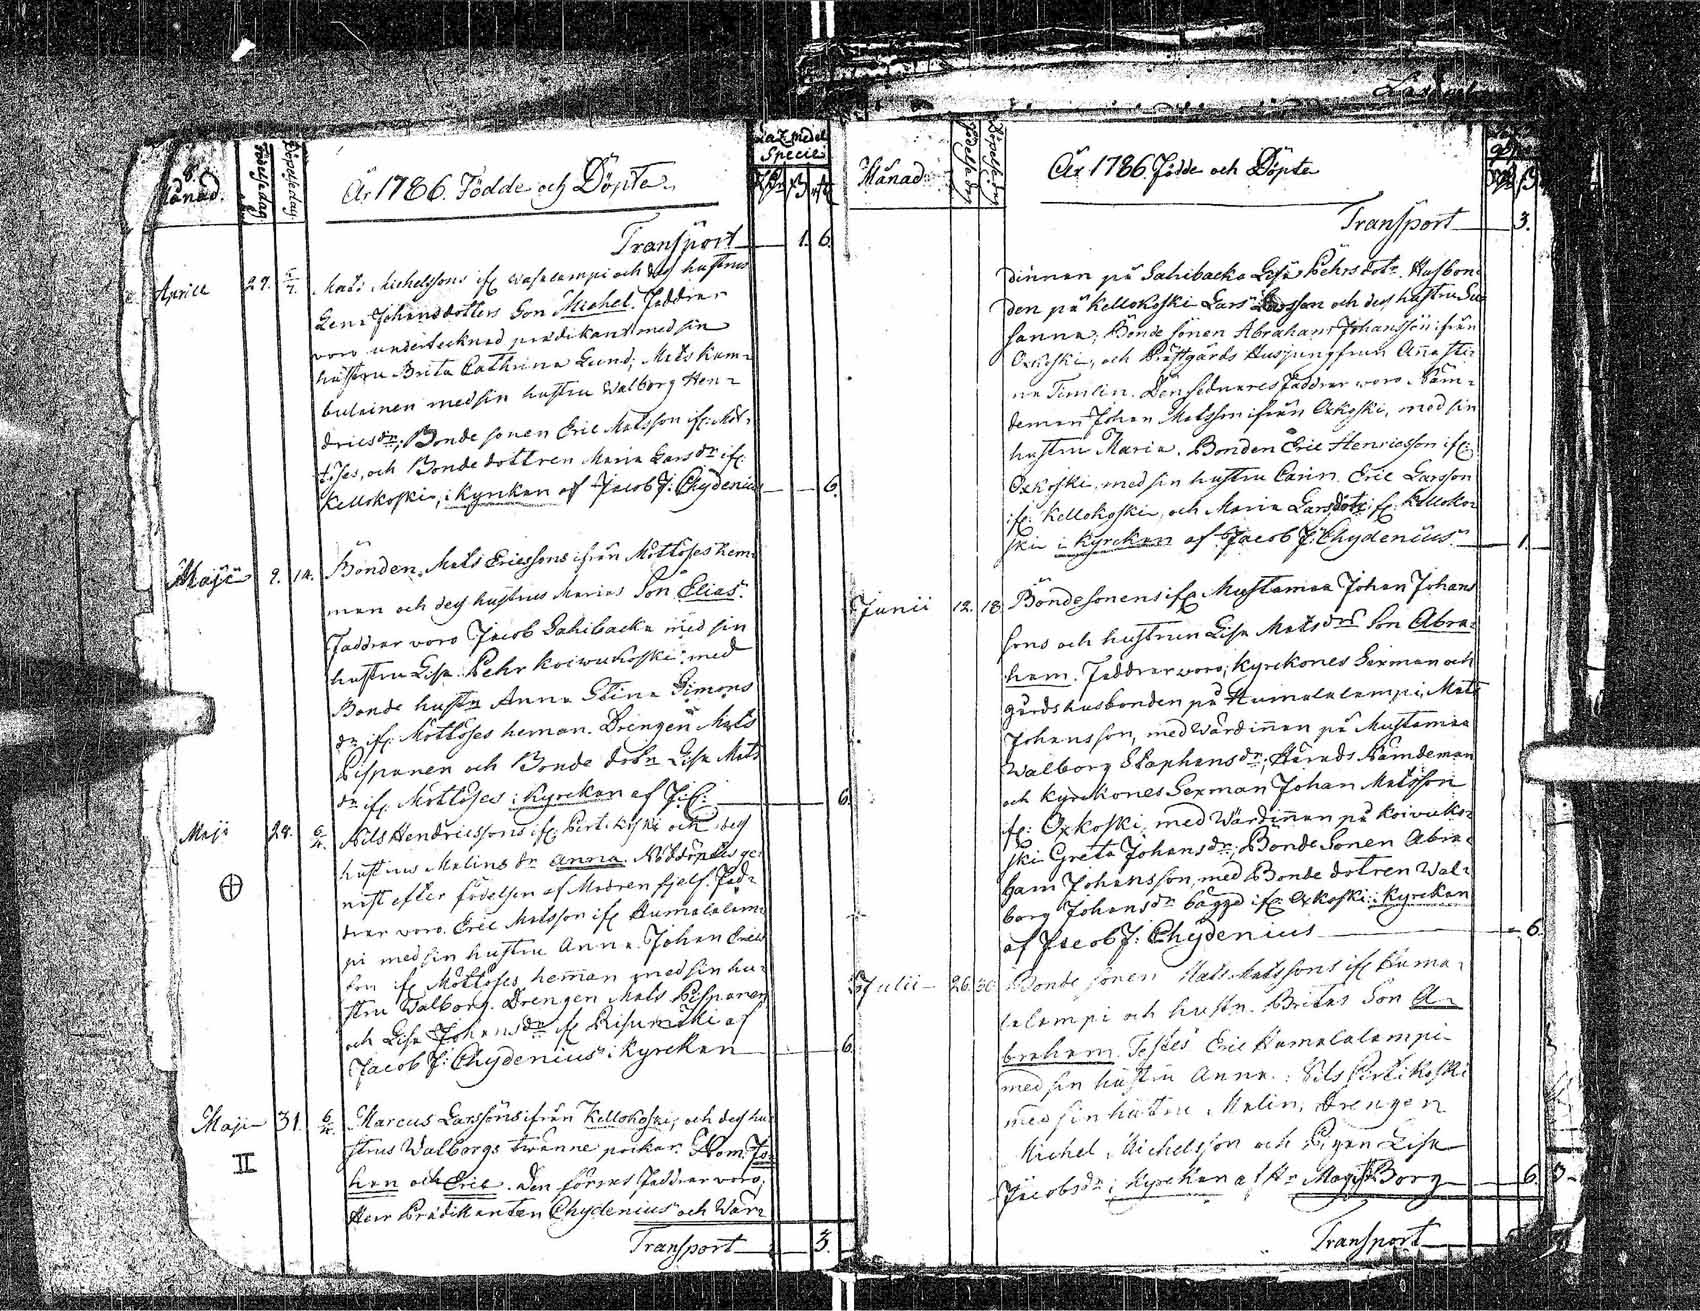 8.
Månad.
Födelsedag
Döpelsedag.
År 1786. Födde och Döpte.
Lazmedel
Specie
Transport 1. 6.
Aprill 27. Mats Michelssons ifr Wasalampi och des hustrus
Lena Johansdotters Son Michel. Faddrar
woro undertecknad prædikant med sin
hustru Brita Cathrina Lund; Mats Kum-
bulainen med sin hustru Walborg Hen-
dricsdr; Bonde sonen Eric Matsson ifr: Möt-
töses, och Bonde dottren Maria Larsdr ifr
Kellokoski, i Kyrkan af Jacob J: Chydenius 6.
Maji 9. 14. Bonden Mats Ericssons ifrån Möttöses hem-
man och des hustrus Marias Son Elias.
Faddrar woro Jacob Lahibacka med sin
hustru Lisa. Pehr Koiwukoski med
Bonde hustn Anna Stina Simons
dr ifr Möttöses heman. Drengen Mats
Pispanen och Bonde dotn Lisa Mats
dr ifr Möttöses i Kyrckan af J:C: 6.
Maji 28. Nils Hendricssons ifr Perttikoski och des
hustrus Malins dr Anna. Nöddöptes ge-
nast efter födelsen af Modren sjelf. Fad-
drar woro Eric Matsson ifr Humalalam-
pi med sin hustru Anna. Johan Erics
son ifr Möttöses hemman med sin hu-
stru Walborg. Drengen Mats Pispanen
och Lisa Johansdr ifr Risumäki af
Jacob J: Chydenius i Kyrckan 6.
Maji 31. Marcus Larssons ifrån Kellokoski, och des hu-
II strus Walborgs twänne poikar. Nom. Jo-
han och Eric. Den förres Faddrar woro,
Herr Prædikanten Chydenius och Wär-
Transport 3.
Månad.
Födelsedag
Döpelsedag
År 1786. Födde och Döpte
Transport 3.
dinnan på Lahibacka Lisa Pehrs dotr. Husbon-
den på Kellokoski Lars Larsson och des hustru Su-
sanna; Bonde sonen Abraham Johansson ifrån
Oxkoski, och Prästgårds Husjungfrun Anna Sti-
na Temlin. Den sednares Faddrar woro Näm-
deman Johan Matsson ifrån Oxkoski, med sin
hustru Maria. Bonden Eric Henricsson ifr:
Oxkoski, med sin hustru Carin. Eric Larsson
ifr: Kellokoski, och Maria Larsdotr ifr: Kelloko-
ski i Kyrckan af Jacob J: Chydenius. 1.
Junii 12. 18 Bondesonens ifr Mustamaa Johan Johans
sons och hustrun Lisa Matsdrs Son Abra-
ham. Faddrar woro; Kyrckones Sexman och
gårdshusbonden på Humalalampi, Mats
Johansson, med Wärdinnan på Mustamaa
Walborg Staphansdr; Härads Nämdeman
och Kyrckones Sexman Johan Matsson
fr: Oxkoski, med Wärdinnan på Koiwuko-
ski Greta Johansdr; Bonde Sonen Abra-
ham Johansson, med Bonde dotren Wal-
borg Johansdr bägge ifr Oxkoski i Kyrckan
af Jacob J: Chydenius 6.
Julii 26. 30 Bonde sonen Mats Matssons ifr Huma-
lalampi och hustn. Britas Son A-
braham. Testes Eric Humalalampi
med sin hustru Anna.; Nils Pertikoski
med sin hustru Malin, drengen
Michel Michelsson och Pigan Lisa
Jacobsdr i Kyrckan af Hr Magist Borg 6. 3
Transport